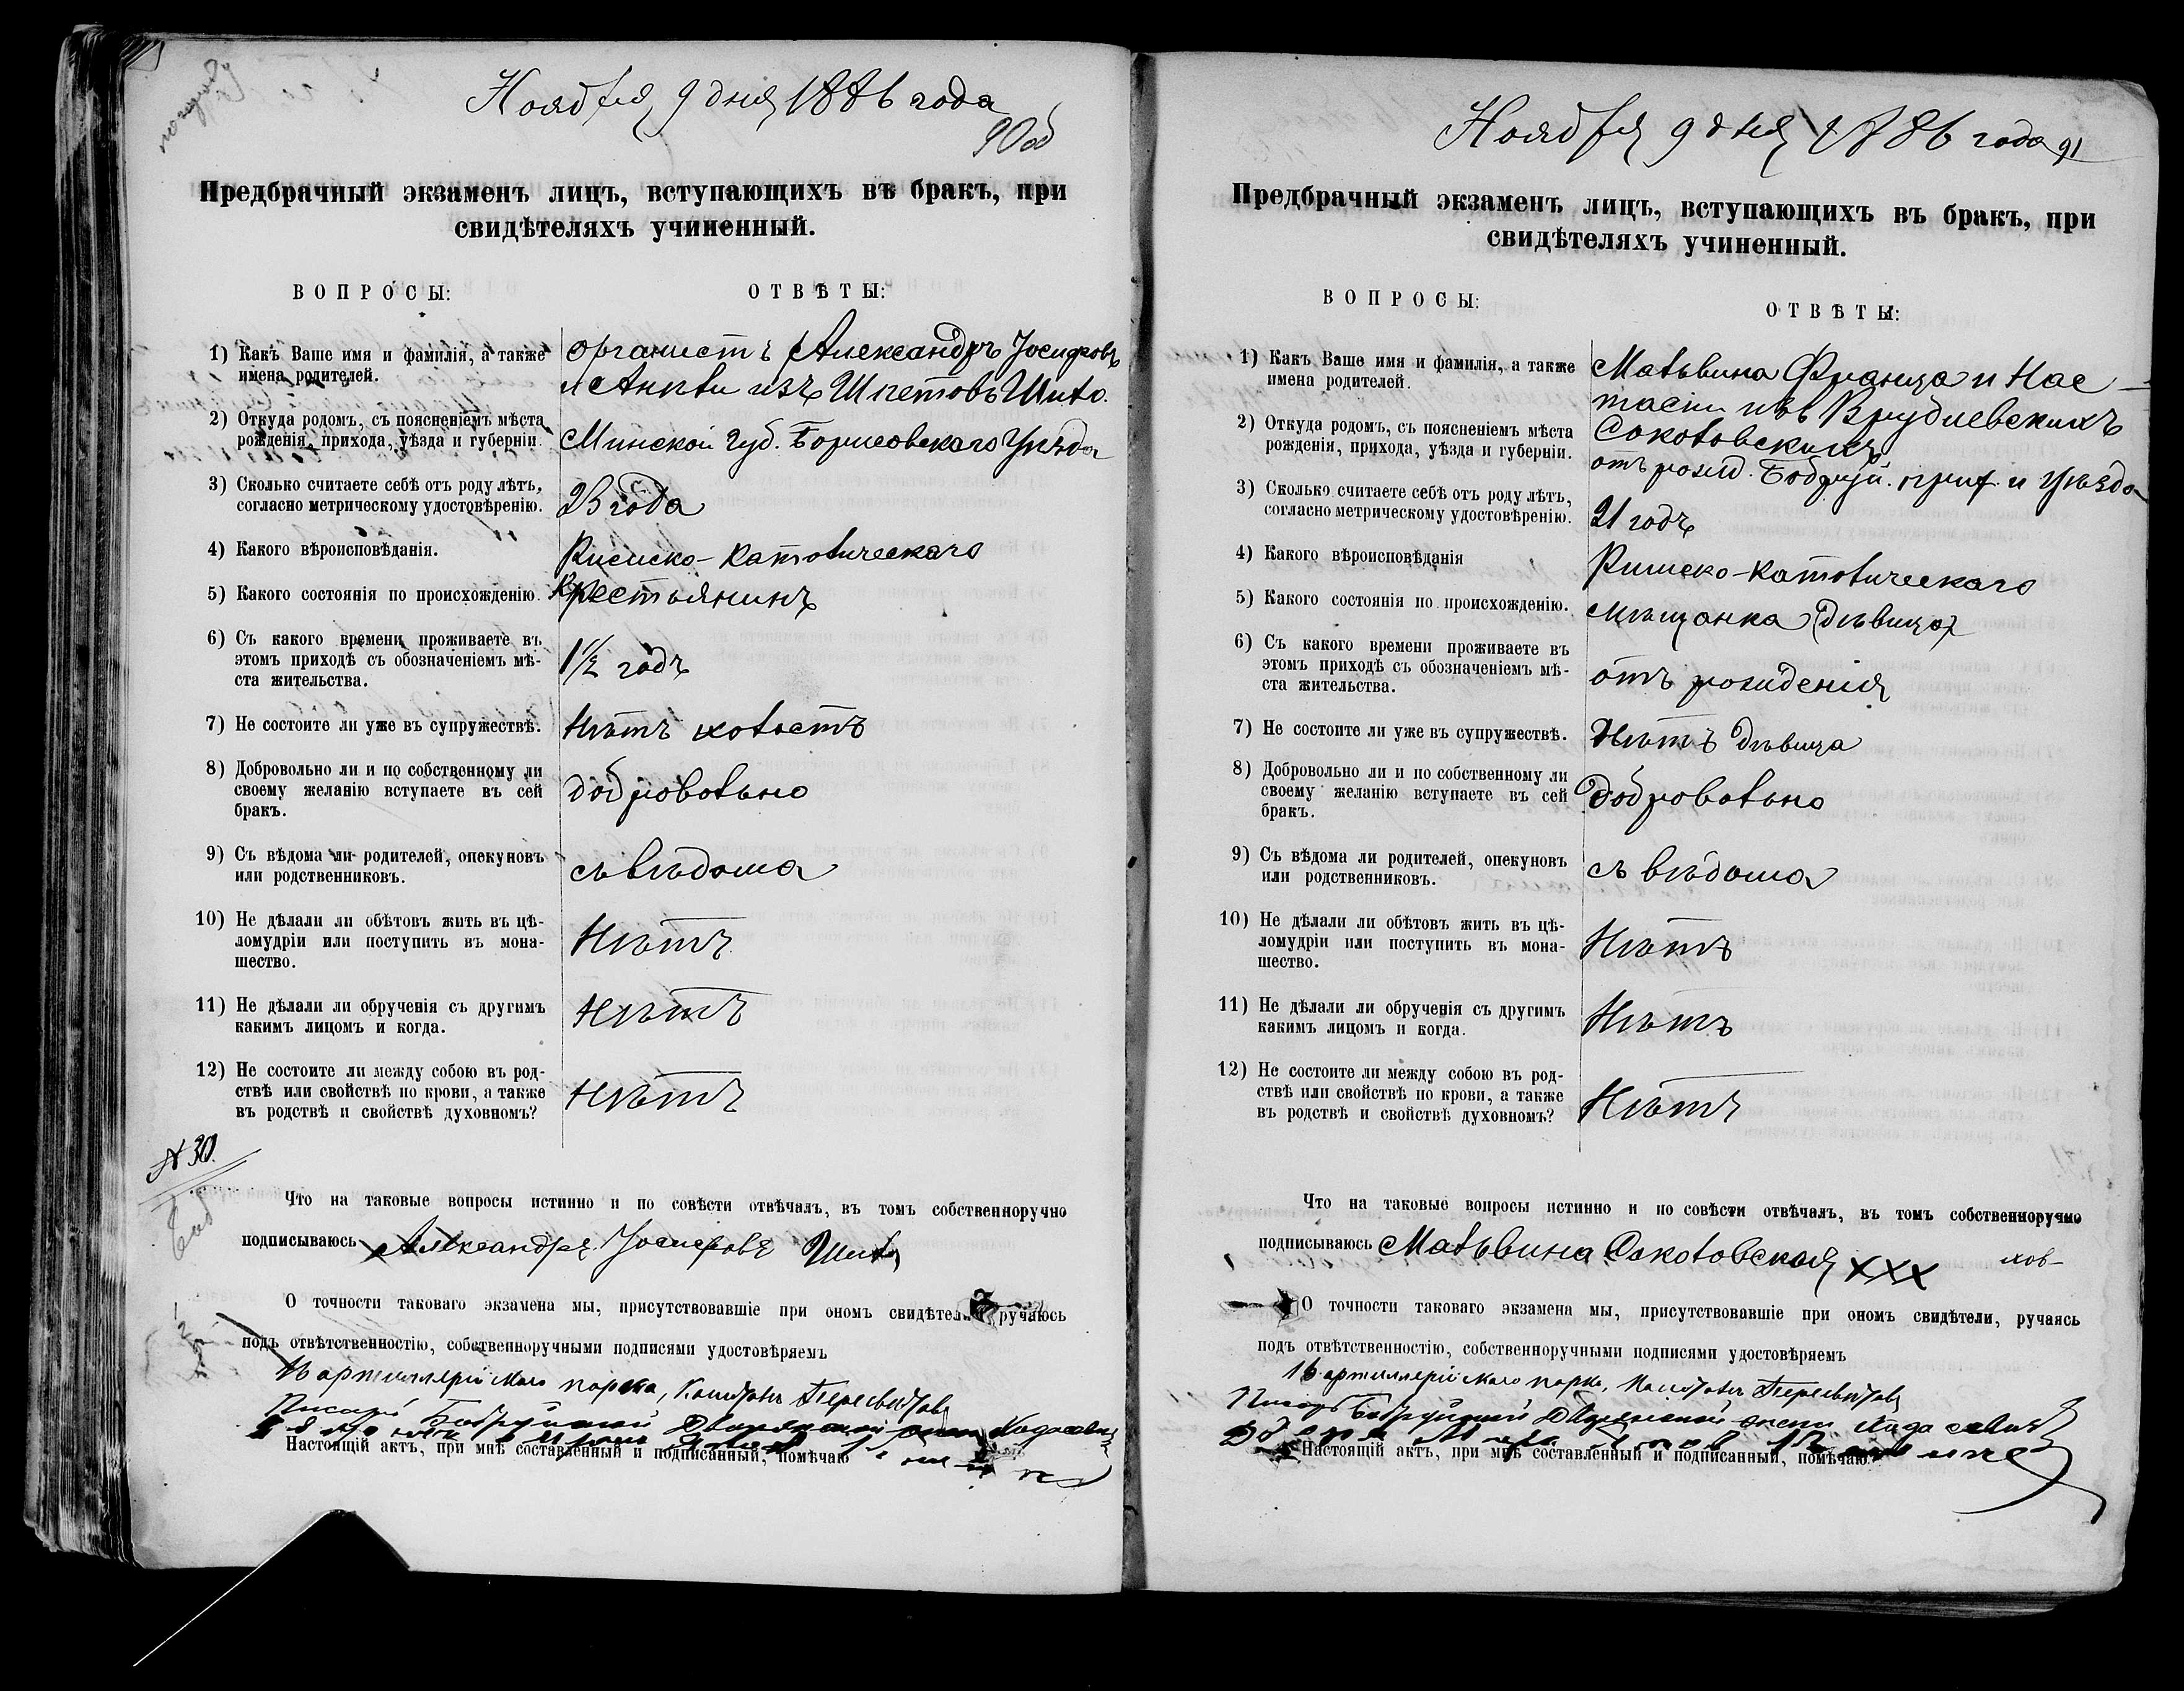 Ноября 9 дня 1886 года
90об
Предбрачный экзаменъ лицъ, вступающихъ въ бракъ, при
свидѣтеляхъ учиненный.
ВОПРОСЫ: ОТВѢТЫ:
1) Какъ Ваше имя и фамилія, а также органистъ Александръ Іосифовъ
имена родителей. и Анны изъ Шпетовъ Шило.
2) Откуда родомъ, съ поясненіемъ мѣста
рожденія, прихода, уѣзда и губерніи. Минской губ. Борисовскаго Уѣзда
3) Сколько считаете себѣ отъ роду лѣтъ,
согласно метрическому удостовѣренію. 23 года
4) Какого вѣроисповѣданія. Римско-Католическаго
5) Какого состоянія по происхожденію. Крестьянинъ
6) Съ какого времени проживаете въ
этомъ приходѣ съ обозначеніемъ мѣ- 1 1/2 годъ
ста жительства.
7) Не состоите ли уже въ супружествѣ. Нѣтъ холостъ
8) Добровольно ли и по собственному ли
своему желанію вступаете въ сей добровольно
бракъ.
9) Съ вѣдома ли родителей, опекуновъ съ вѣдома
или родственниковъ.
10) Не дѣлали ли обѣтовъ жить въ цѣ-
ломудріи или поступить въ мона- Нѣтъ
шество.
11) Не дѣлали ли обрученія съ другимъ Нѣтъ
какимъ лицомъ и когда.
12) Не состоите ли между собою въ род-
ствѣ или свойствѣ по крови, а также Нѣтъ
въ родствѣ и свойствѣ духовномъ?
№ 30.
Что на таковые вопросы истинно и по совѣсти отвѣчалъ, въ томъ собственноручно
подписываюсь Александръ Іосифовъ Шило
О точности таковаго экзамена мы, присутствовавшіе при ономъ свидѣтели ручаюсь
подъ отвѣтственностію, собственноручными подписями удостовѣряемъ
16 артиллерійскаго парка, Капитанъ Пересвѣтовъ
Писарь Бобруйской Дворянской опеки
Настоящій актъ, при мнѣ составленный и подписанный, помѣчаю
Ноября 9 дня 1886 года 91
Предбрачный экзаменъ лицъ, вступающихъ въ бракъ, при
свидѣтеляхъ учиненный.
ВОПРОСЫ: ОТВѢТЫ:
1) Какъ Ваше имя и фамилія, а также Мальвина Франца и Нас-
имена родителей. тасіи изъ Врублевскихъ
2) Откуда родомъ, съ поясненіемъ мѣста Соколовскихъ
рожденія, прихода, уѣзда и губерніи. отъ рожд. Бобруй. прих. и уѣзда
3) Сколько считаете себѣ отъ роду лѣтъ,
согласно метрическому удостовѣренію. 21 годъ
4) Какого вѣроисповѣданія Римско-Католическаго
5) Какого состоянія по происхожденію. Мѣщанка (дѣвица)
6) Съ какого времени проживаете въ
этомъ приходѣ съ обозначеніемъ мѣ- отъ рожденія
ста жительства.
7) Не состоите ли уже въ супружествѣ. Нѣтъ дѣвица
8) Добровольно ли и по собственному ли
своему желанію вступаете въ сей Добровольно
бракъ.
9) Съ вѣдома ли родителей, опекуновъ съ вѣдома
или родственниковъ.
10) Не дѣлали ли обѣтовъ жить въ цѣ-
ломудріи или поступить въ мона- Нѣтъ
шество.
11) Не дѣлали ли обрученія съ другимъ Нѣтъ
какимъ лицомъ и когда.
12) Не состоите ли между собою въ род-
ствѣ или свойствѣ по крови, а также Нѣтъ
въ родствѣ и свойствѣ духовномъ?
Что на таковые вопросы истинно и по совѣсти отвѣчалъ, въ томъ собственноручно
подписываюсь Мальвина Соколовская ХХХ
О точности таковаго экзамена мы, присутствовавшіе при ономъ свидѣтели, ручаясь
подъ отвѣтственностію, собственноручными подписями удостовѣряемъ
16 артиллерійскаго парка, Капитанъ Пересвѣтовъ
Писарь Бобруйской Дворянской опеки
Настоящій актъ, при мнѣ составленный и подписанный, помѣчаю.